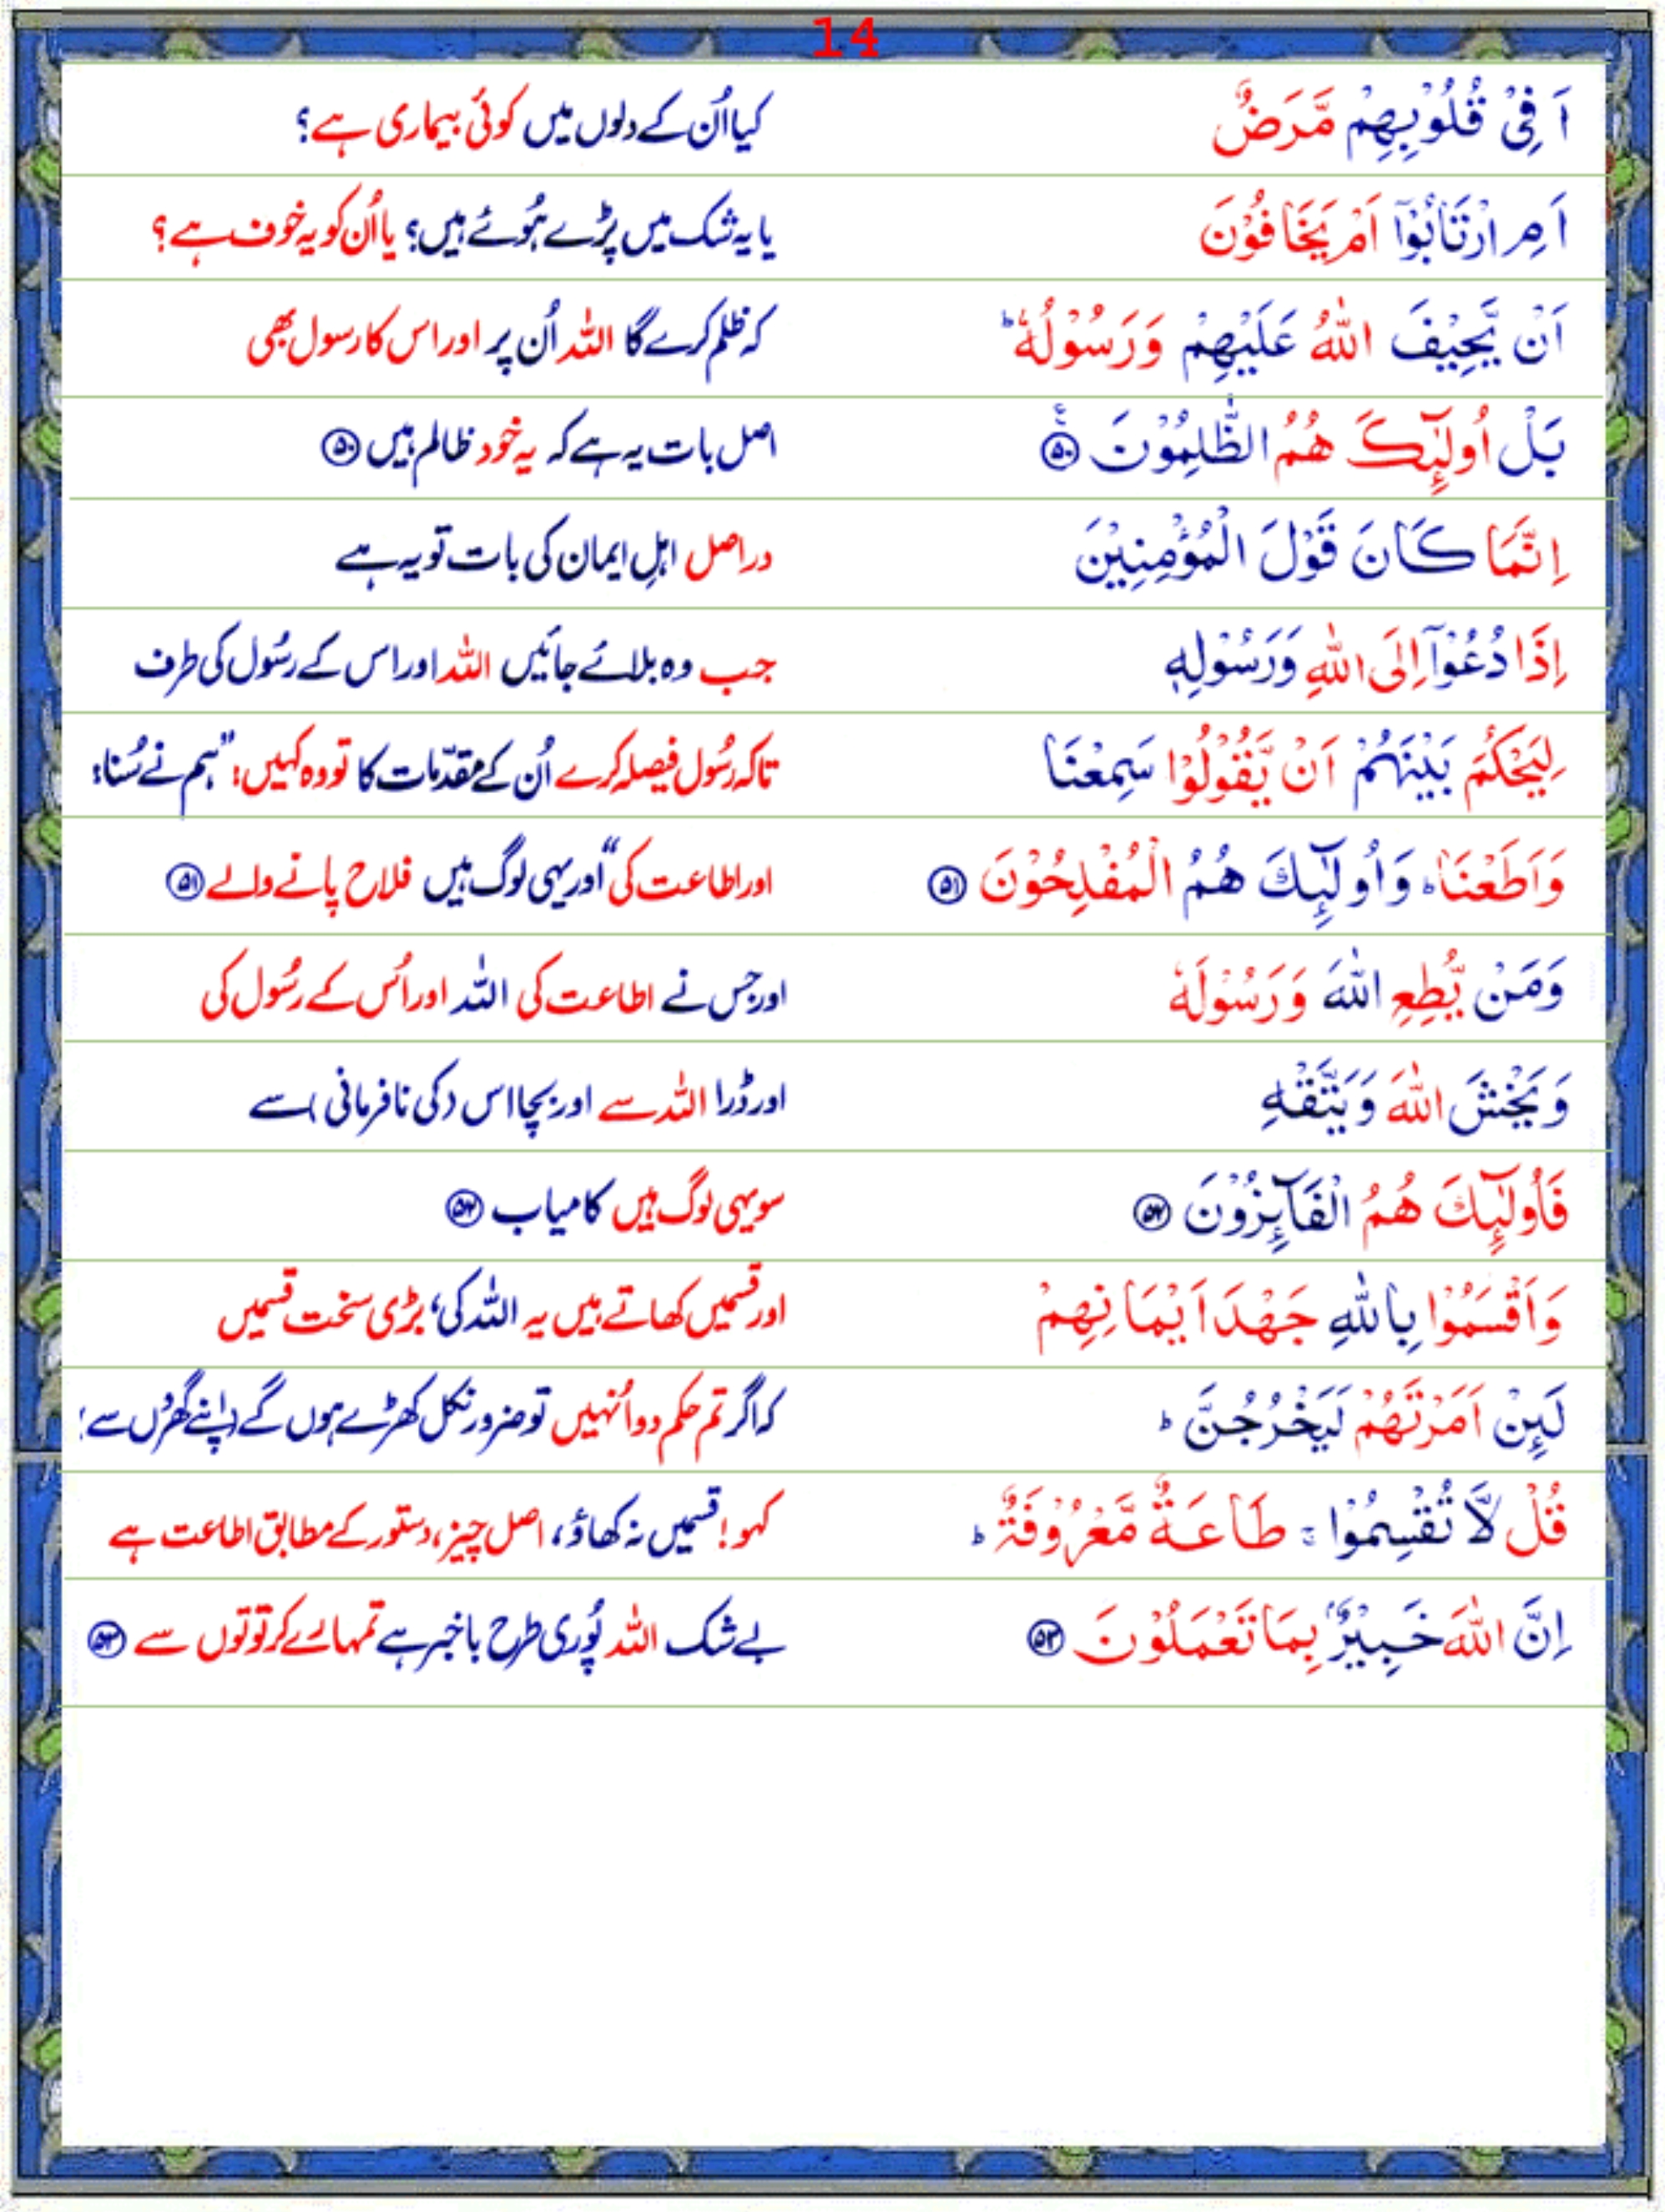 14
اَفِیْ قُلُوْبِهِمْ مَّرَضٌ کیا اُن کے دلوں میں کوئی بیماری ہے؟
اَمِ ارْتَابُوْۤا اَمْ یَخَافُوْنَ یا یہ شک میں پڑے ہُوئے ہیں؟ یا اُن کو یہ خوف ہے؟
اَنْ یَّحِیْفَ اللّٰهُ عَلَیْهِمْ وَرَسُوْلُهٗ ؕ کہ ظلم کرے گا اللہ اُن پر اور اس کا رسول بھی
بَلْ اُولٰٓىِٕكَ هُمُ الظّٰلِمُوْنَ ﴿۵۰﴾ اصل بات یہ ہے کہ یہ خود ظالم ہیں ﴿۵۰﴾
اِنَّمَا كَانَ قَوْلَ الْمُؤْمِنِیْنَ دراصل اہلِ ایمان کی بات تو یہ ہے
اِذَا دُعُوْۤا اِلَی اللّٰهِ وَرَسُوْلِهٖ جب وہ بلائے جائیں اللہ اور اس کے رسُول کی طرف
لِیَحْكُمَ بَیْنَهُمْ اَنْ یَّقُوْلُوْا سَمِعْنَا تاکہ رسُول فیصلہ کرے اُن کے مقدّمات کا تو وہ کہیں: "ہم نے سُنا؛
وَاَطَعْنَا ؕ وَاُولٰٓىِٕكَ هُمُ الْمُفْلِحُوْنَ ﴿۵۱﴾ اور اطاعت کی" اور یہی لوگ ہیں فلاح پانے والے ﴿۵۱﴾
وَمَنْ یُّطِعِ اللّٰهَ وَرَسُوْلَهٗ اور جس نے اطاعت کی اللہ اور اُس کے رسُول کی
وَیَخْشَ اللّٰهَ وَیَتَّقْهِ اور ڈرا اللہ سے اور بچا اس (کی نافرمانی) سے
فَاُولٰٓىِٕكَ هُمُ الْفَآىِٕزُوْنَ ﴿۵۲﴾ سو یہی لوگ ہیں کامیاب ﴿۵۲﴾
وَاَقْسَمُوْا بِاللّٰهِ جَهْدَ اَیْمَانِهِمْ اور قسمیں کھاتے ہیں یہ اللہ کی، بڑی سخت قسمیں
لَىِٕنْ اَمَرْتَهُمْ لَیَخْرُجُنَّ ؕ کہ اگر تم حکم دو اُنہیں تو ضرور نکل کھڑے ہوں گے (اپنے گھروں سے)
قُلْ لَّا تُقْسِمُوْا ۚ طَاعَةٌ مَّعْرُوْفَةٌ ؕ کہو! قسمیں نہ کھاؤ، اصل چیز، دستور کے مطابق اطاعت ہے
اِنَّ اللّٰهَ خَبِیْرٌۢ بِمَا تَعْمَلُوْنَ ﴿۵۳﴾ بے شک اللہ پُوری طرح باخبر ہے تمہارے کرتوتوں سے ﴿۵۳﴾